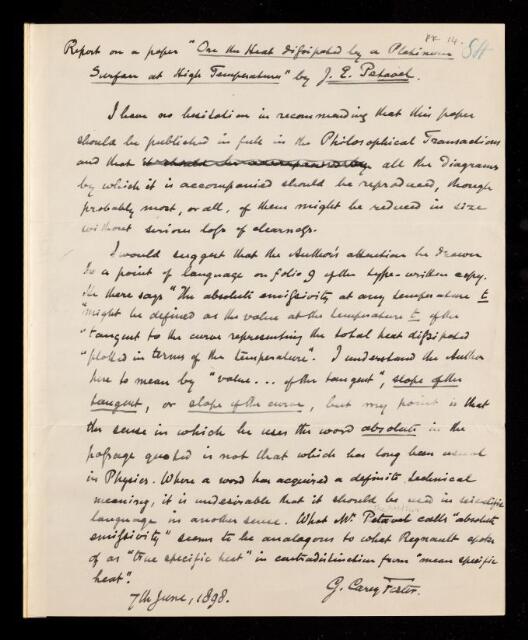 Report on a paper "On the Heat dissipated by a Platinum SH
Surface at High Temperatures" by J. E. Petavel.
I have no hesitation in recommending that this paper
should be published in full in the Philosophical Transactions
and that it should be accompanied by all the diagrams
by which it is accompanied should be reproduced, though
probably most, or all, of them might be reduced in size
without serious loss of clearness.
I would suggest that the Author's attention be drawn
to a point of language on folio 9 of the type-written copy.
He there says "The absolute emissivity at any temperature t
"might be defined as the value at the temperature t of the
"tangent to the curve representing the total heat dissipated
"plotted in terms of the temperature". I understand the Author
here to mean by "value... of the tangent", slope of the
tangent, or slope of the curve, but my point is that
the sense in which he uses the word absolute in the
passage quoted is not that which has long been usual
in Physics. Where a word has acquired a definite technical
meaning, it is undesirable that it should be used in scientific
language in another sense. What Mr Petavel calls "absolute
emissivity" seems to be analogous to what Regnault spoke
of as "true specific heat" in contradistinction from "mean specific
heat".
7th June, 1898. G. Carey Foster.